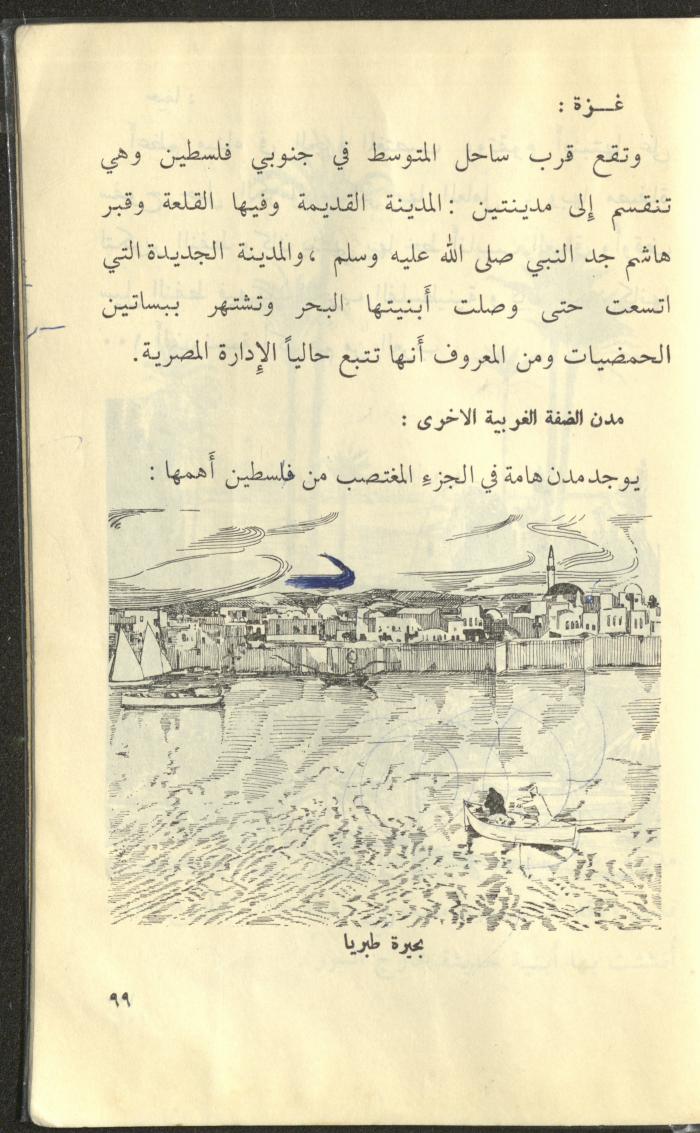 غـــزة :
وتقع قرب ساحل المتوسط في جنوبي فلسطين وهي
تنقسم إلى مدينتين : المدينة القديمة وفيها القلعة وقبر
هاشم جد النبي صلى الله عليه وسلم ، والمدينة الجديدة التي
اتسعت حتى وصلت أبنيتها البحر وتشتهر ببساتين
الحمضيات ومن المعروف أنها تتبع حالياً الإدارة المصرية.
مدن الضفة الغربية الاخرى :
يوجد مدن هامة في الجزء المغتصب من فلسطين أهمها :
بحيرة طبريا
٩٩